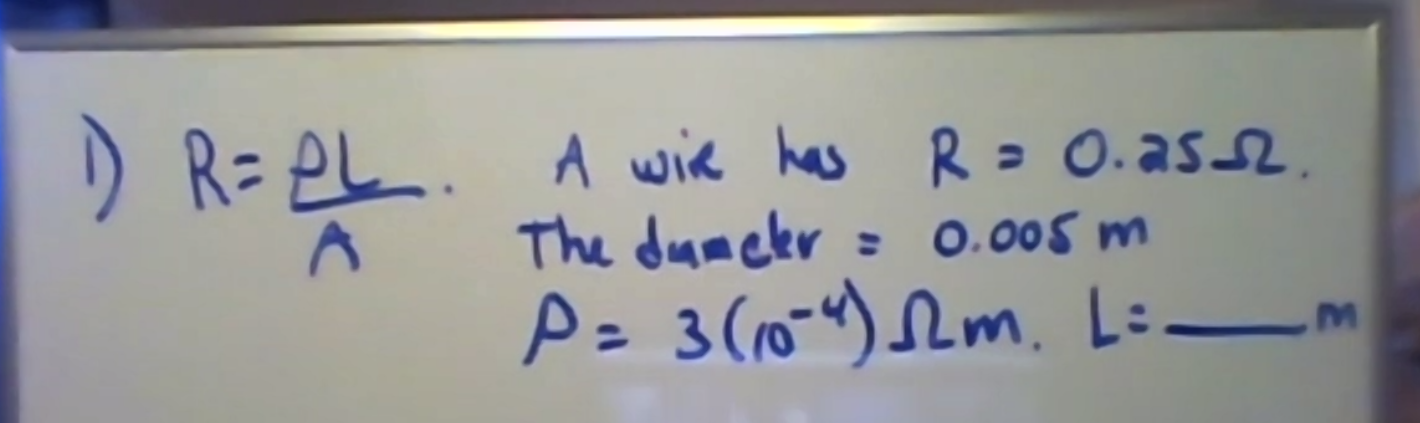 1) R = ρL / A . A wire has R = 0.25Ω.
The diameter = 0.005 m
ρ = 3(10⁻⁴) Ωm. L = ____ m